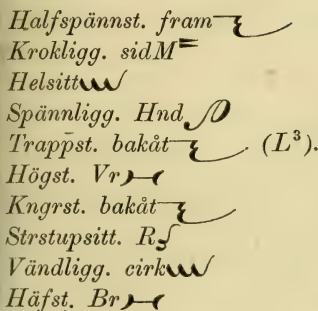 Halfspännst. fram
Krokligg. sidM
Helsitt
Spännligg. Hnd
Trappst. bakåt . (L³).
Högst. Vr
Kngrst. bakåt
Strstupsitt. R
Vändligg. cirk
Häfst. Br